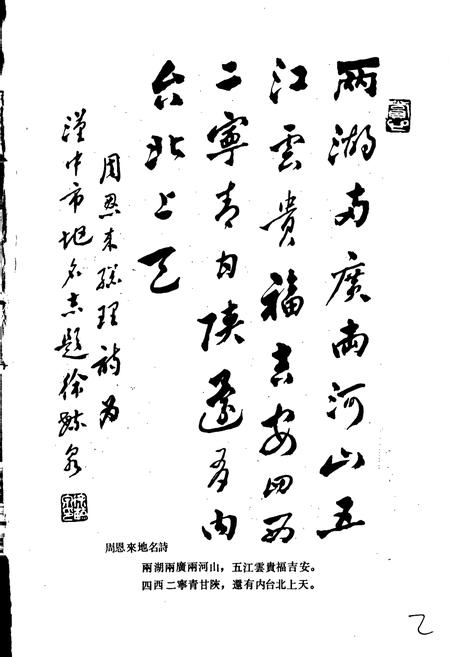 兩湖兩廣兩河山五
江雲貴福吉安四西
二寧青甘陝還有內
台北上天
周恩來總理詩為
漢中市地名志題徐毓泉
周恩來地名詩
兩湖兩廣兩河山，五江雲貴福吉安。
四西二寧青甘陝，還有內台北上天。
乙